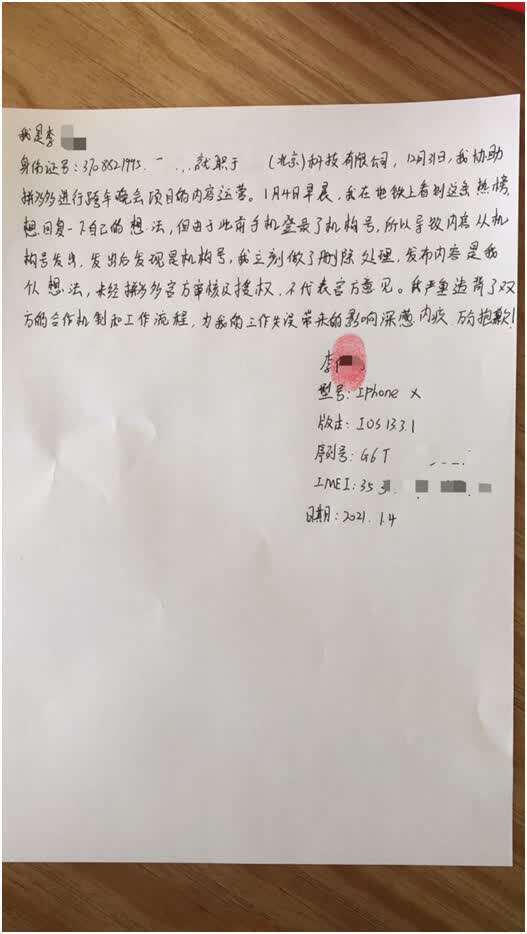 我是李
身份证号:3708821993. 就职于 (北京)科技有限公司,12月31日,我协助
拼多多进行跨年晚会项目的内容运营。1月4日早晨,我在地铁上看到这条热榜,
想回复一下自己的想法,但由于此前手机登录了机构号,所以导致内容从机
构号发出,发出后发现是机构号,我立刻做了删除处理,发布内容是我
个人想法,未经拼多多官方审核及授权,不代表官方意见。我严重违背了双
方的合作机制和工作流程,为我的工作失误带来的影响深感内疚 万分抱歉!
李
型号:Iphone X
版本:IOS 13.3.1
序列号:G6T
IMEI:35 3
日期:2021.1.4